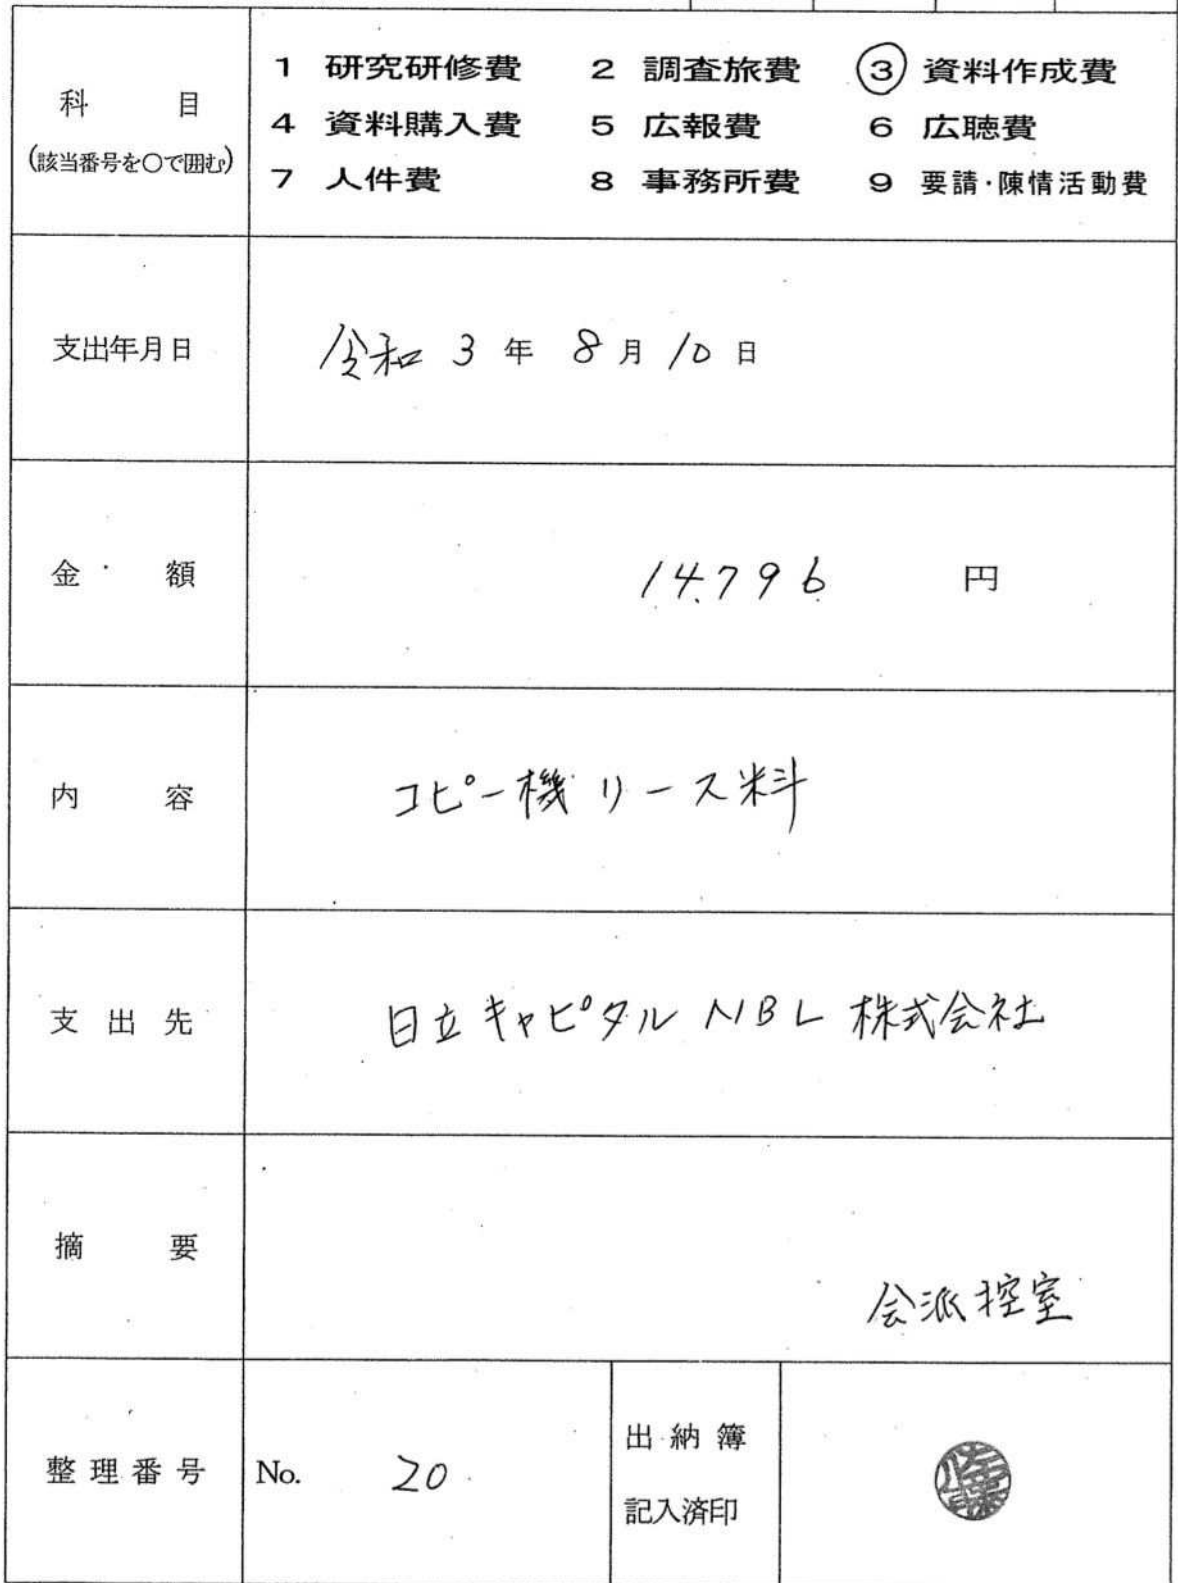 科 目
(該当番号を○で囲む)
1 研究研修費 2 調査旅費 ③ 資料作成費
4 資料購入費 5 広報費 6 広聴費
7 人件費 8 事務所費 9 要請・陳情活動費
支出年月日 令和 3 年 8 月 10 日
金 額 14,796 円
内 容 コピー機リース料
支 出 先 日立キャピタルNBL株式会社
摘 要
会派控室
整理番号 No. 20
出納簿
記入済印